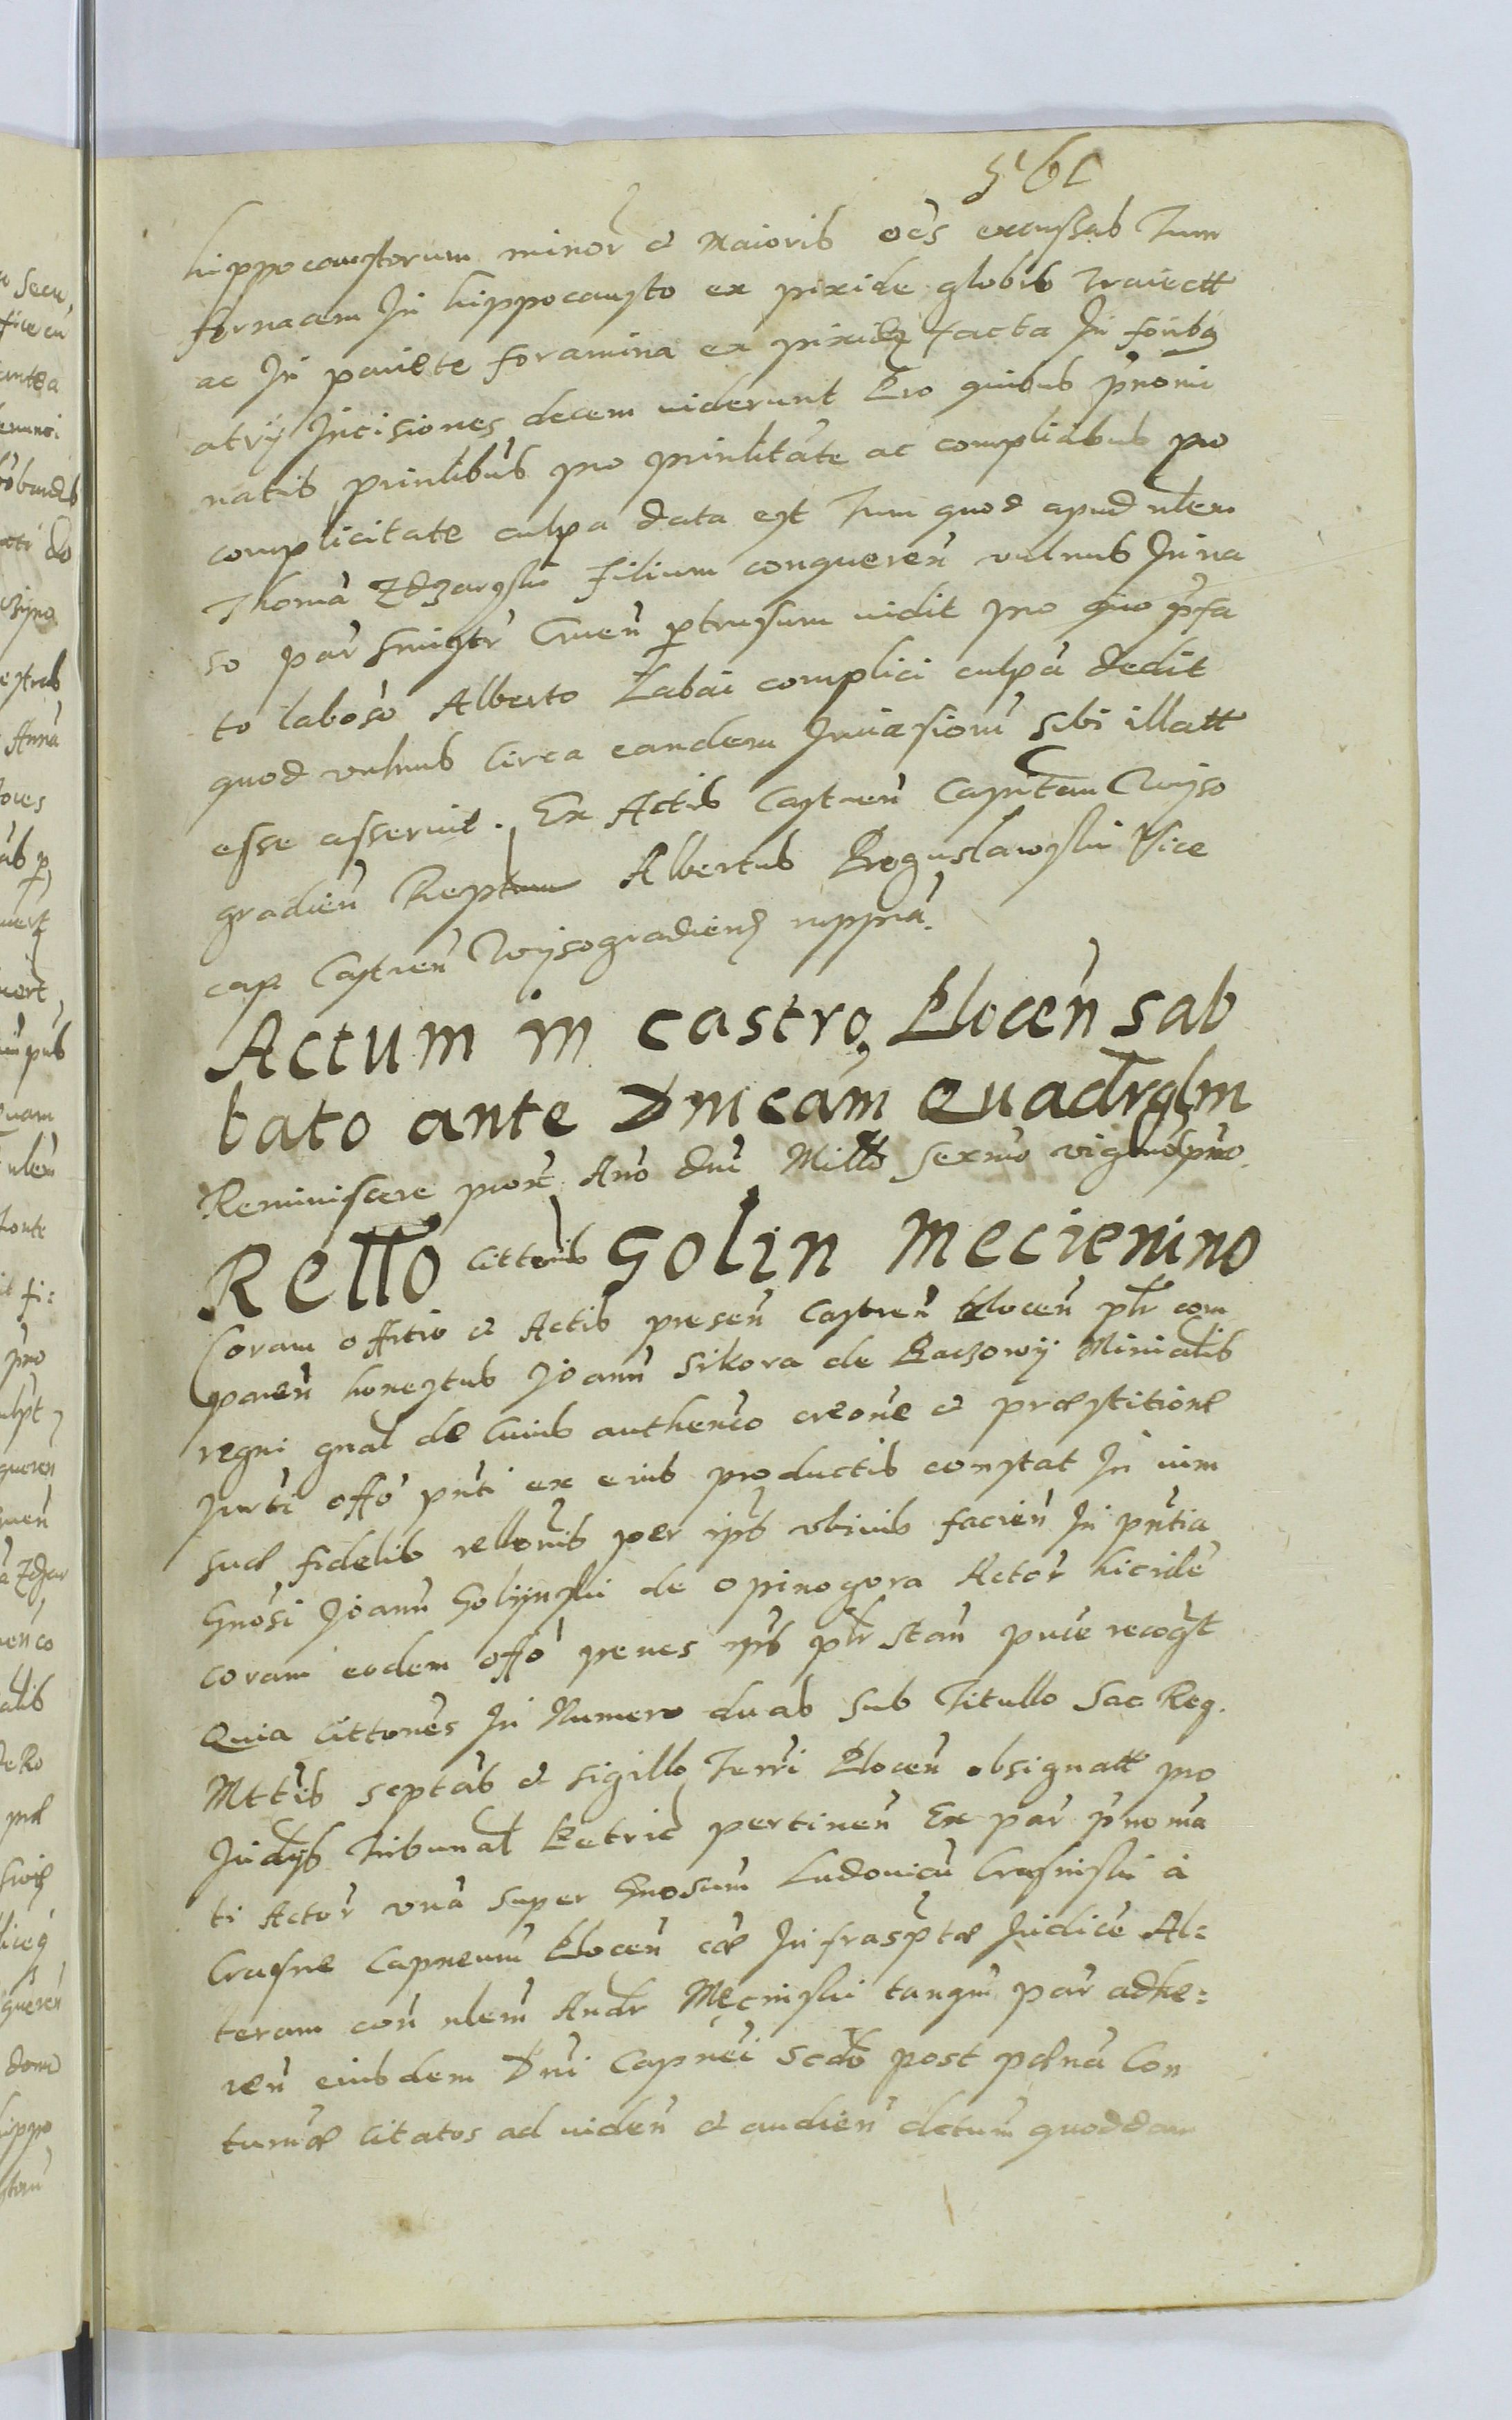 hippocaustorum minor et Maioris oēs excussas Tum
fornacem In hippocausto ex pixide globis Traiectt
ac In pariete foramina ex pixidẹ facta In foribꝯ
atrÿ Incisiones decem viderunt Pro quibus p̃nomi
natis prin̄libus pro prin̄litate ac complicibus pro
complicitate culpa data est Tum quod apud nblem
Thomā Zdzarski filium conqueren̄ vulnus In na
so par sinistr̄ Cruen̄ ꝑtrusum vidit pro quo p̃fa
to laboso Alberto Labai complici culpā dedit
quod vulnus circa eandem Inuasionē sibi illatt
esse asseruit. Ex Actis Castren̄ Capitan̄ Wyso
gradien̄ Reptum Albertus Boguslawski Vice
cap Castren̄ Wÿsogradien̄ mppriā.
Actum in castro Plocen̄ sab
bato ante Dnicam Quadrglm
Reminiscere prox̄ Ano dni Millo sexmo vig̃mo p̃mo
Rello Litteris Golin Mecienino
Coram offitio et Actis presen̄ Castren̄ Plocen̄ plr̄ com
paren̄ honestus Joann̄ Sikora de Raczowÿ Minialis
regni gnal de Cuius authenco creone et præstitione
Jurti offo pn̄ti ex eius productis constat In vim
suæ fidelis rellonis per ips̄ vbiuis facien̄ In pn̄tia
Gnosi Joann̄ Golijnski de opinogora Actor̄ hicide
coram eodem offo penes ips̄ plr̄ stan̄ pu̅ce recog̃t
Quia Litteres In Numero duas sub Titullo Sac Reg.
Mttis scptas et sigillo Terri Plocen̄ obsignatt pro
Judÿs Tribunal Petric pertinen̄ Ex par p̃noma
ti Actor vnā super Gnosum Ludouicū Crasinski à
Crasne Capneum Plocen̄ cæ Infrascptæ Judice Al=
teram con̄ nblem Andr Męcinski tanqm par adhe=
ren̄ eiusdem Dni Capnei scdo post pœnā Con
tumæ Citatos ad viden̄ et audien̄ dctum quoddam